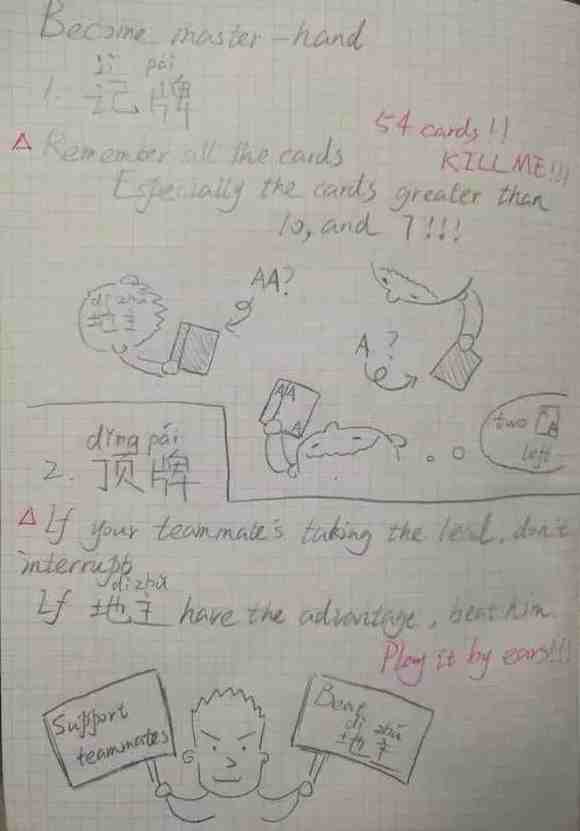 Become master-hand
jì pái
1. 记牌
54 cards!!
KILL ME!!!
△ Remember all the cards
Especially the cards greater than
10, and 7!!!
AA?
dì zhǔ
地主
A ?
AA
A
two A
left
dǐng pái
2. 顶牌
△ If your teammate's taking the lead, don't
interrupt
dì zhǔ
If 地主 have the advantage, beat him.
Play it by ears!!!
Support
teammates
Beat
dì zhǔ
地主